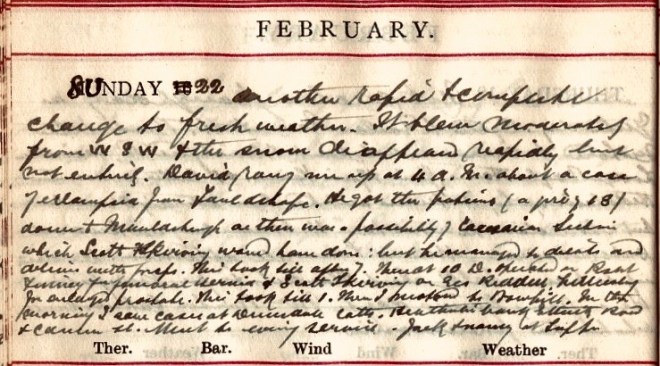 FEBRUARY.
SUNDAY 22 another rapid & complete
change to fresh weather. It blew moderately
from W & W & the snow disappeared rapidly but
not entirely. David rang me up at 4 a.m. about a case
of eclampsia from He got the patient (a
down to as there was a possibility of Caesarian Section
which Scott would have done: but he managed to dilate and
deliver with forceps. This took till after 7. Then at 10 D. operated on
for femoral hernia & Scott on Geo Riddell
for enlarged prostate. This took till 1. Then I motored to Bowhill. In the
morning I saw cases at
& Went to evening service. Jack & at
Ther. Bar. Wind Weather